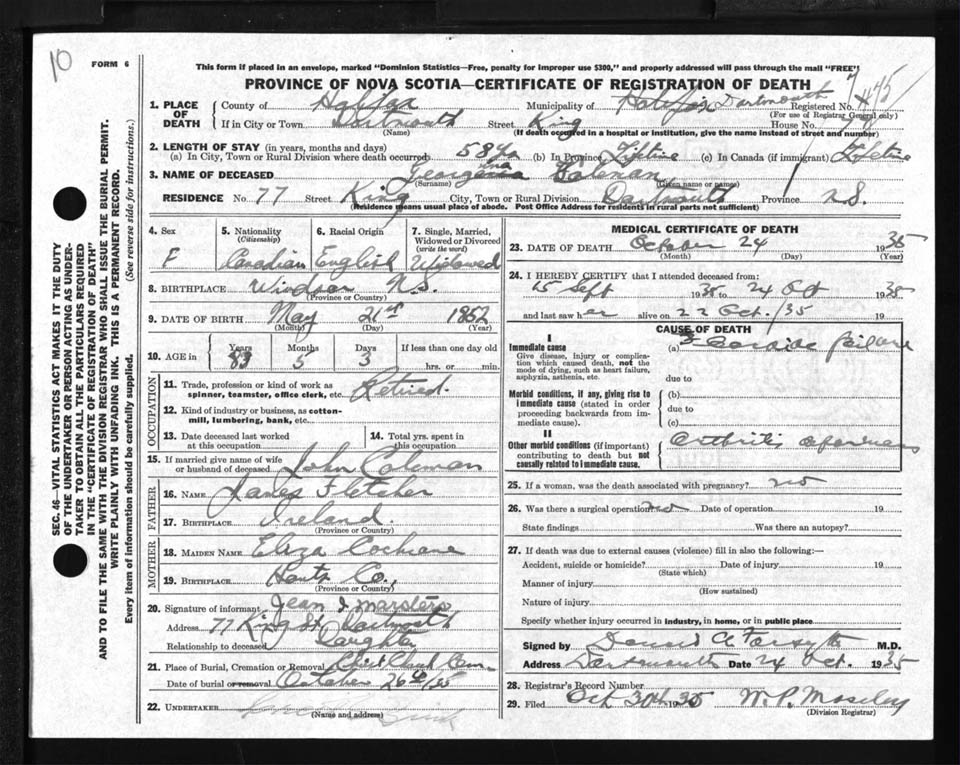 10
FORM 6
This form if placed in an envelope, marked "Dominion Statistics—Free, penalty for improper use $300," and properly addressed will pass through the mail "FREE"
PROVINCE OF NOVA SCOTIA—CERTIFICATE OF REGISTRATION OF DEATH
1. PLACE OF DEATH
County of Halifax Municipality of Halifax Dartmouth Registered No.
(For use of Registrar General only)
If in City or Town Dartmouth Street King House No.
(Name) (If death occurred in a hospital or institution, give the name instead of street and number)
2. LENGTH OF STAY (in years, months and days)
(a) In City, Town or Rural Division where death occurred 58 yrs (b) In Province Lifetime (c) In Canada (if immigrant) Lifetime
3. NAME OF DECEASED Georgena Coleman
(Surname) (Given name or names)
RESIDENCE No. 77 Street King City, Town or Rural Division Dartmouth Province N.S.
(Residence means usual place of abode. Post Office Address for residents in rural parts not sufficient)
4. Sex F
5. Nationality (Citizenship) Canadian
6. Racial Origin English
7. Single, Married, Widowed or Divorced (write the word) Widowed
8. BIRTHPLACE Windsor N.S.
(Province or Country)
9. DATE OF BIRTH May 21st 1852
(Month) (Day) (Year)
10. AGE in Years 83 Months 5 Days 3 If less than one day old
hrs. or min.
OCCUPATION
11. Trade, profession or kind of work as spinner, teamster, office clerk, etc. Retired.
12. Kind of industry or business, as cotton-mill, lumbering, bank, etc.
13. Date deceased last worked at this occupation
14. Total yrs. spent in this occupation
15. If married give name of wife or husband of deceased John Coleman
FATHER
16. NAME James Fletcher
17. BIRTHPLACE Ireland.
(Province or Country)
MOTHER
18. MAIDEN NAME Eliza Cochrane
19. BIRTHPLACE Hants Co.,
(Province or Country)
20. Signature of informant Jean J Marsters
Address 77 King St. Dartmouth
Relationship to deceased Daughter
21. Place of Burial, Cremation or Removal Christ Church Cem
Date of burial or removal October 26th/35
22. UNDERTAKER
(Name and address)
MEDICAL CERTIFICATE OF DEATH
23. DATE OF DEATH October 24 1935
(Month) (Day) (Year)
24. I HEREBY CERTIFY that I attended deceased from:
15 Sept 1935 to 24 Oct 1935
and last saw her alive on 22 Oct./35 19
CAUSE OF DEATH
I
Immediate cause
Give disease, injury or complication which caused death, not the mode of dying, such as heart failure, asphyxia, asthenia, etc.
(a) Cardiac failure
due to
Morbid conditions, if any, giving rise to immediate cause (stated in order proceeding backwards from immediate cause).
(b)
due to
(c)
II
Other morbid conditions (if important) contributing to death but not causally related to immediate cause.
Arthritis
25. If a woman, was the death associated with pregnancy? no
26. Was there a surgical operation? no Date of operation 19
State findings Was there an autopsy?
27. If death was due to external causes (violence) fill in also the following:—
Accident, suicide or homicide? Date of injury 19
(State which)
Manner of injury
(How sustained)
Nature of injury
Specify whether injury occurred in industry, in home, or in public place
Signed by Donald A Forsyth M.D.
Address Dartmouth Date 24 Oct. 1935
28. Registrar's Record Number
29. Filed Oct 30th 1935 W. P. Moseley
(Division Registrar)
SEC. 46—VITAL STATISTICS ACT MAKES IT THE DUTY
OF THE UNDERTAKER OR PERSON ACTING AS UNDER-
TAKER TO OBTAIN ALL THE PARTICULARS REQUIRED
IN THE "CERTIFICATE OF REGISTRATION OF DEATH"
AND TO FILE THE SAME WITH THE DIVISION REGISTRAR WHO SHALL ISSUE THE BURIAL PERMIT.
WRITE PLAINLY WITH UNFADING INK. THIS IS A PERMANENT RECORD.
Every item of information should be carefully supplied. (See reverse side for instructions.)